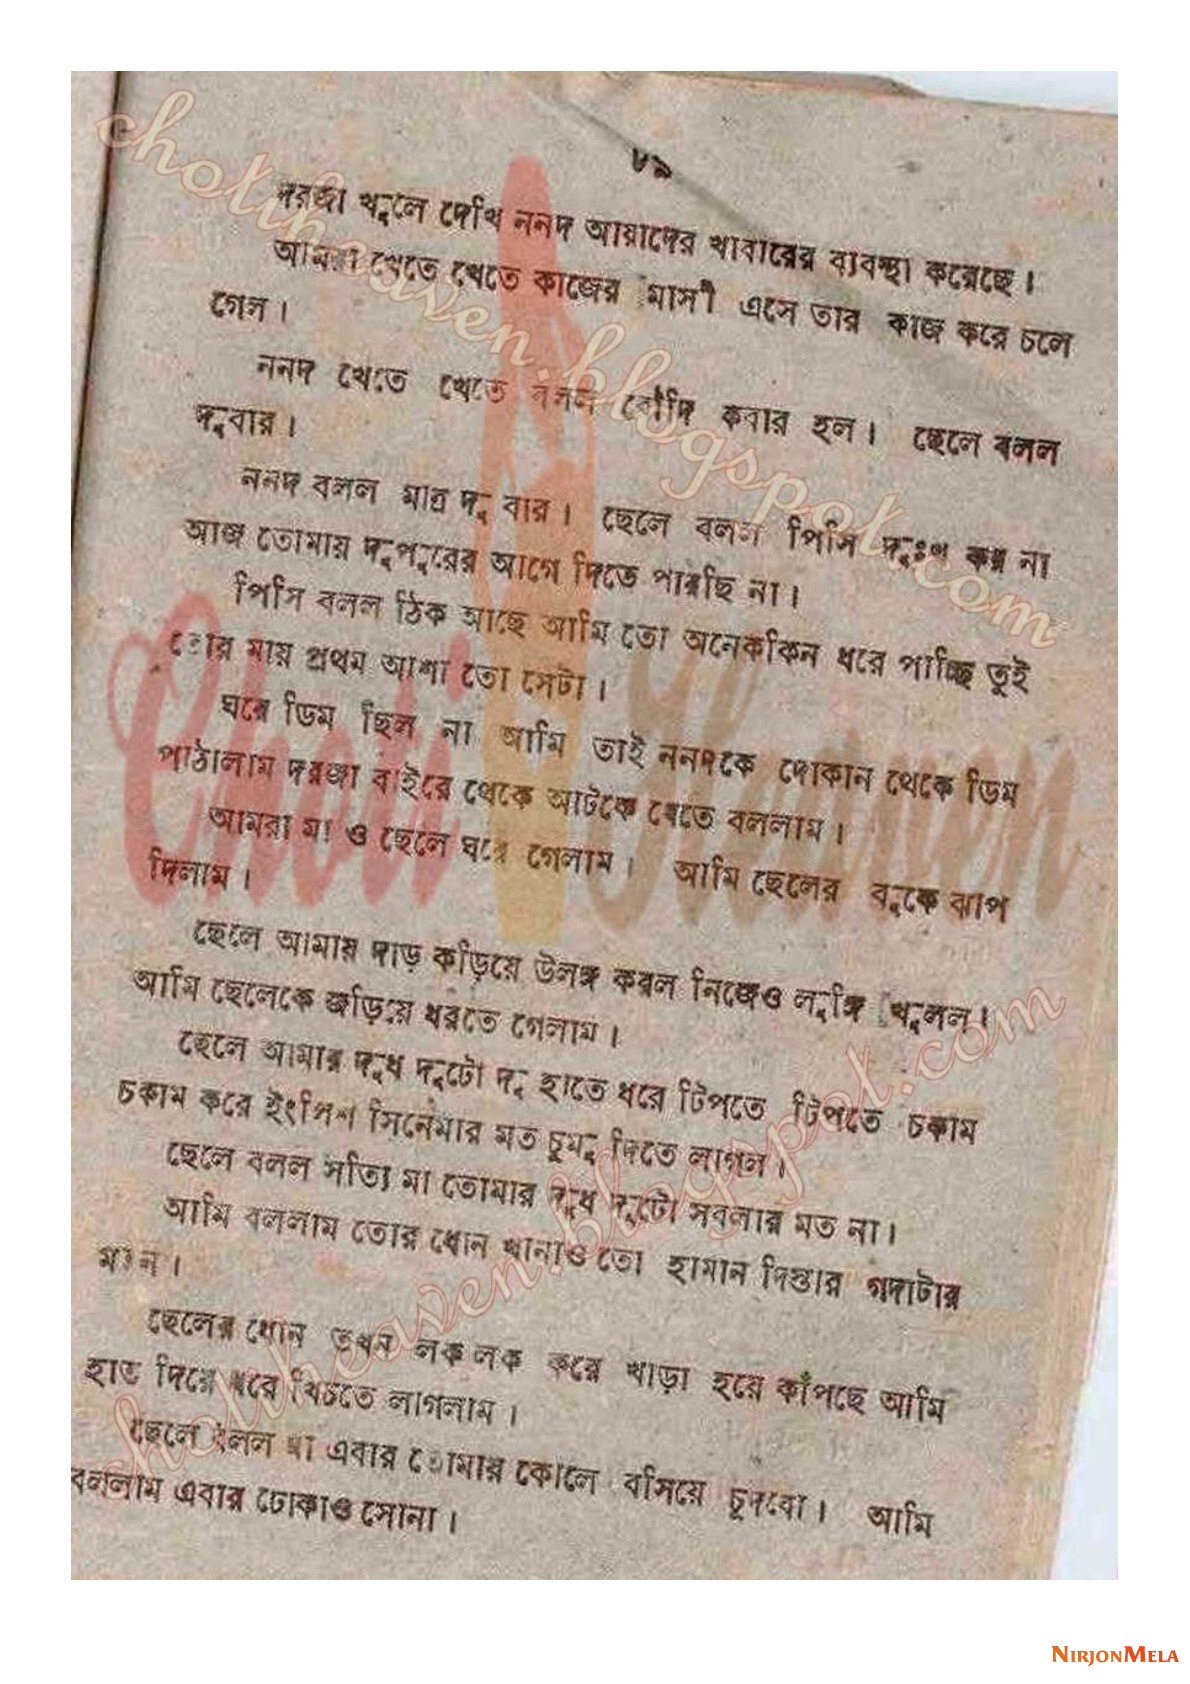 ৮৯
দরজা খুলে দেখি ননদ আয়াদের খাবারের ব্যবস্থা করেছে।
আমরা খেতে খেতে কাজের মাসী এসে তার কাজ করে চলে
গেল।
ননদ খেতে খেতে বলল বৌদি কবার হল। ছেলে বলল
দুবার।
ননদ বলল মাত্র দু বার। ছেলে বলল পিসি দুঃখ কর না
আজ তোমায় দুপুরের আগে দিতে পারছি না।
পিসি বলল ঠিক আছে আমি তো অনেককিন ধরে পাচ্ছি তুই
তোর মায় প্রথম আশা তো সেটা।
ঘরে ডিম ছিল না আমি তাই ননদকে দোকান থেকে ডিম
পাঠালাম দরজা বাইরে থেকে আটকে যেতে বললাম।
আমরা মা ও ছেলে ঘরে গেলাম। আমি ছেলের বুকে ঝাপ
দিলাম।
ছেলে আমায় দাড় কড়িয়ে উলঙ্গ করল নিজেও লুঙ্গি খুলল।
আমি ছেলেকে জড়িয়ে ধরতে গেলাম।
ছেলে আমার দুধ দুটো দু হাতে ধরে টিপতে টিপতে চকাম
চকাম করে ইংপিশ সিনেমার মত চুমু দিতে লাগল।
ছেলে বলল সত্যি মা তোমার দুধ দুটো সবলার মত না।
আমি বললাম তোর ধোন খানাও তো হামান দিস্তার গদাটার
মতন।
ছেলের ধোন তখন লকলক করে খাড়া হয়ে কাঁপছে আমি
হাত দিয়ে ধরে খিচতে লাগলাম।
ছেলে বলল মা এবার তোমায় কোলে বসিয়ে চুদবো। আমি
বললাম এবার ঢোকাও সোনা।
chotiheaven.blogspot.com
Choti Heaven
chotiheaven.blogspot.com
NIRJONMELA